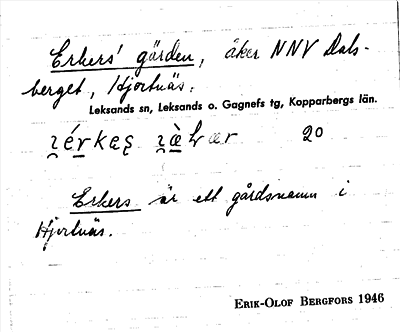 Erkers' gården, åker NNV Dals-
berget, Hjortnäs.
Leksands sn, Leksands o. Gagnefs tg, Kopparbergs län.
20
Erkers är ett gårdsnamn i
Hjortnäs.
ERIK-OLOF BERGFORS 1946